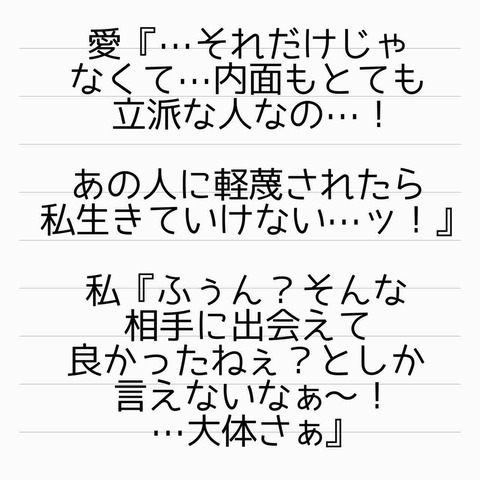 愛『…それだけじゃ
なくて…内面もとても
立派な人なの…！
あの人に軽蔑されたら
私生きていけない…ッ！』
私『ふぅん？そんな
相手に出会えて
良かったねぇ？としか
言えないなぁ〜！
…大体さぁ』